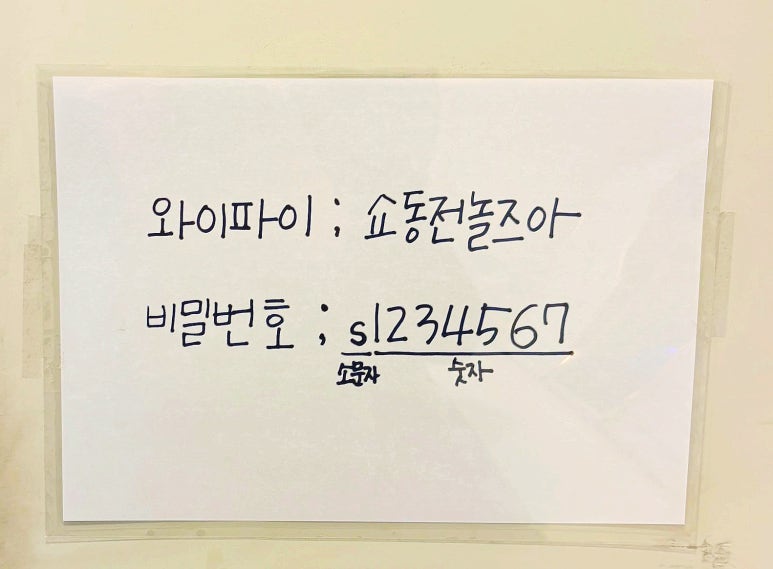 와이파이 ; 쇼동전놀즈아
비밀번호 ; s1234567
소문자 숫자